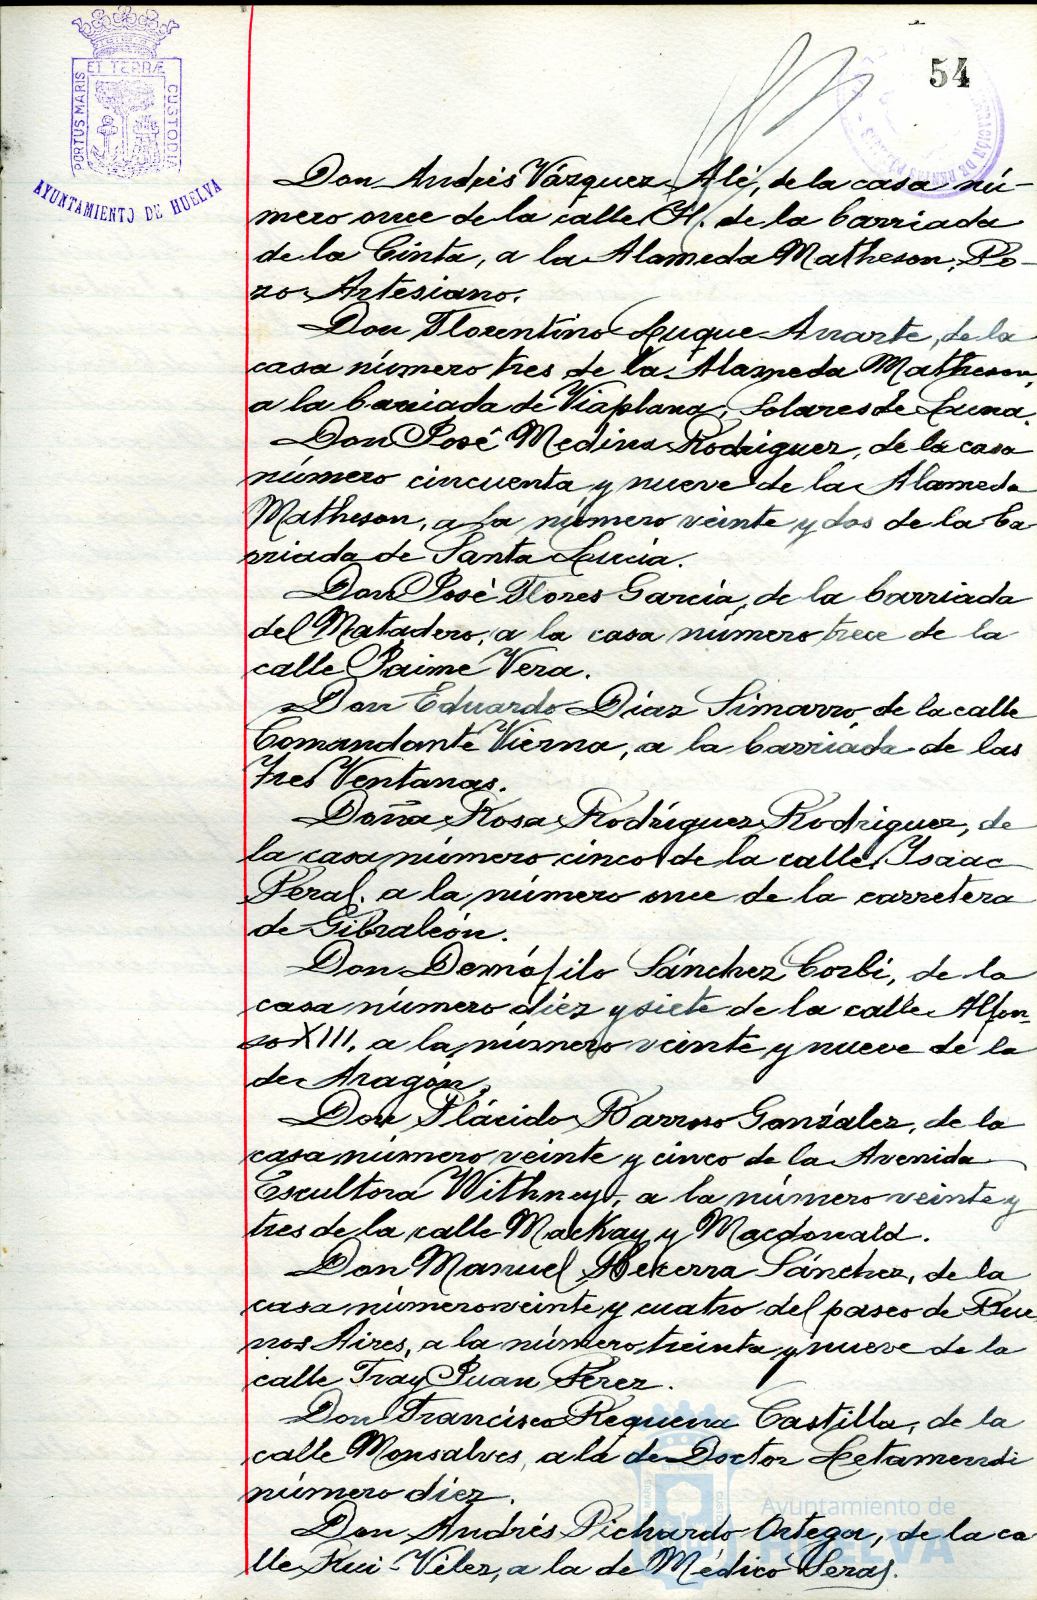 54
ET TERRÆ
PORTUS MARIS
CUSTODIA
AYUNTAMIENTO DE HUELVA
Don Andrés Vázquez Alé, de la casa nú-
mero once de la calle H. de la barriada
de la Cinta, a la Alameda Matheson, Po-
zo Artesiano.
Don Florentino Luque Arrarte, de la
casa número tres de la Alameda Matheson,
a la barriada de Viaplana, Solares de Luna.
Don José Medina Rodríguez, de la casa
número cincuenta y nueve de la Alameda
Matheson, a la número veinte y dos de la ba
rriada de Santa Lucía.
Don José Flores García, de la barriada
del Matadero, a la casa número trece de la
calle Jaime Vera.
Don Eduardo Díaz Simarro, de la calle
Comandante Vierna, a la barriada de las
Tres Ventanas.
Doña Rosa Rodríguez Rodríguez, de
la casa número cinco de la calle Isaac
Peral, a la número once de la carretera
de Gibraleón.
Don Demófilo Sánchez Corbi, de la
casa número diez y siete de la calle Alfon-
so XIII, a la número veinte y nueve de la
de Aragón.
Don Plácido Barroso González, de la
casa número veinte y cinco de la Avenida
Escultora Withney, a la número veinte y
tres de la calle Mackay y Macdonald.
Don Manuel Becerra Sánchez, de la
casa número veinte y cuatro del paseo de Bue
nos Aires, a la número treinta y nueve de la
calle Fray Juan Pérez.
Don Francisco Requena Castilla, de la
calle Monsalves, a la de Doctor Letamendi
número diez.
Don Andrés Pichardo Ortega, de la ca
lle Rui-Vélez, a la de Médico Seras.
Ayuntamiento de
HUELVA